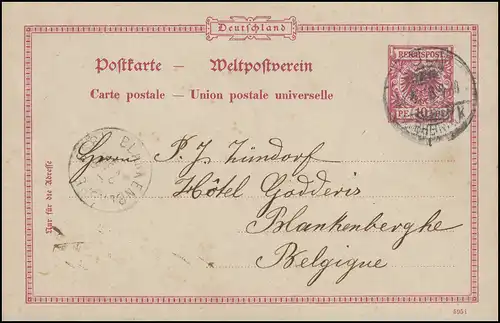 Deutschland
REICHSPOST
Postkarte – Weltpostverein
Carte postale – Union postale universelle
10
Nur für die Adresse
Herrn P. J. Zündorf
Hôtel Godderis
Blankenberghe
Belgique